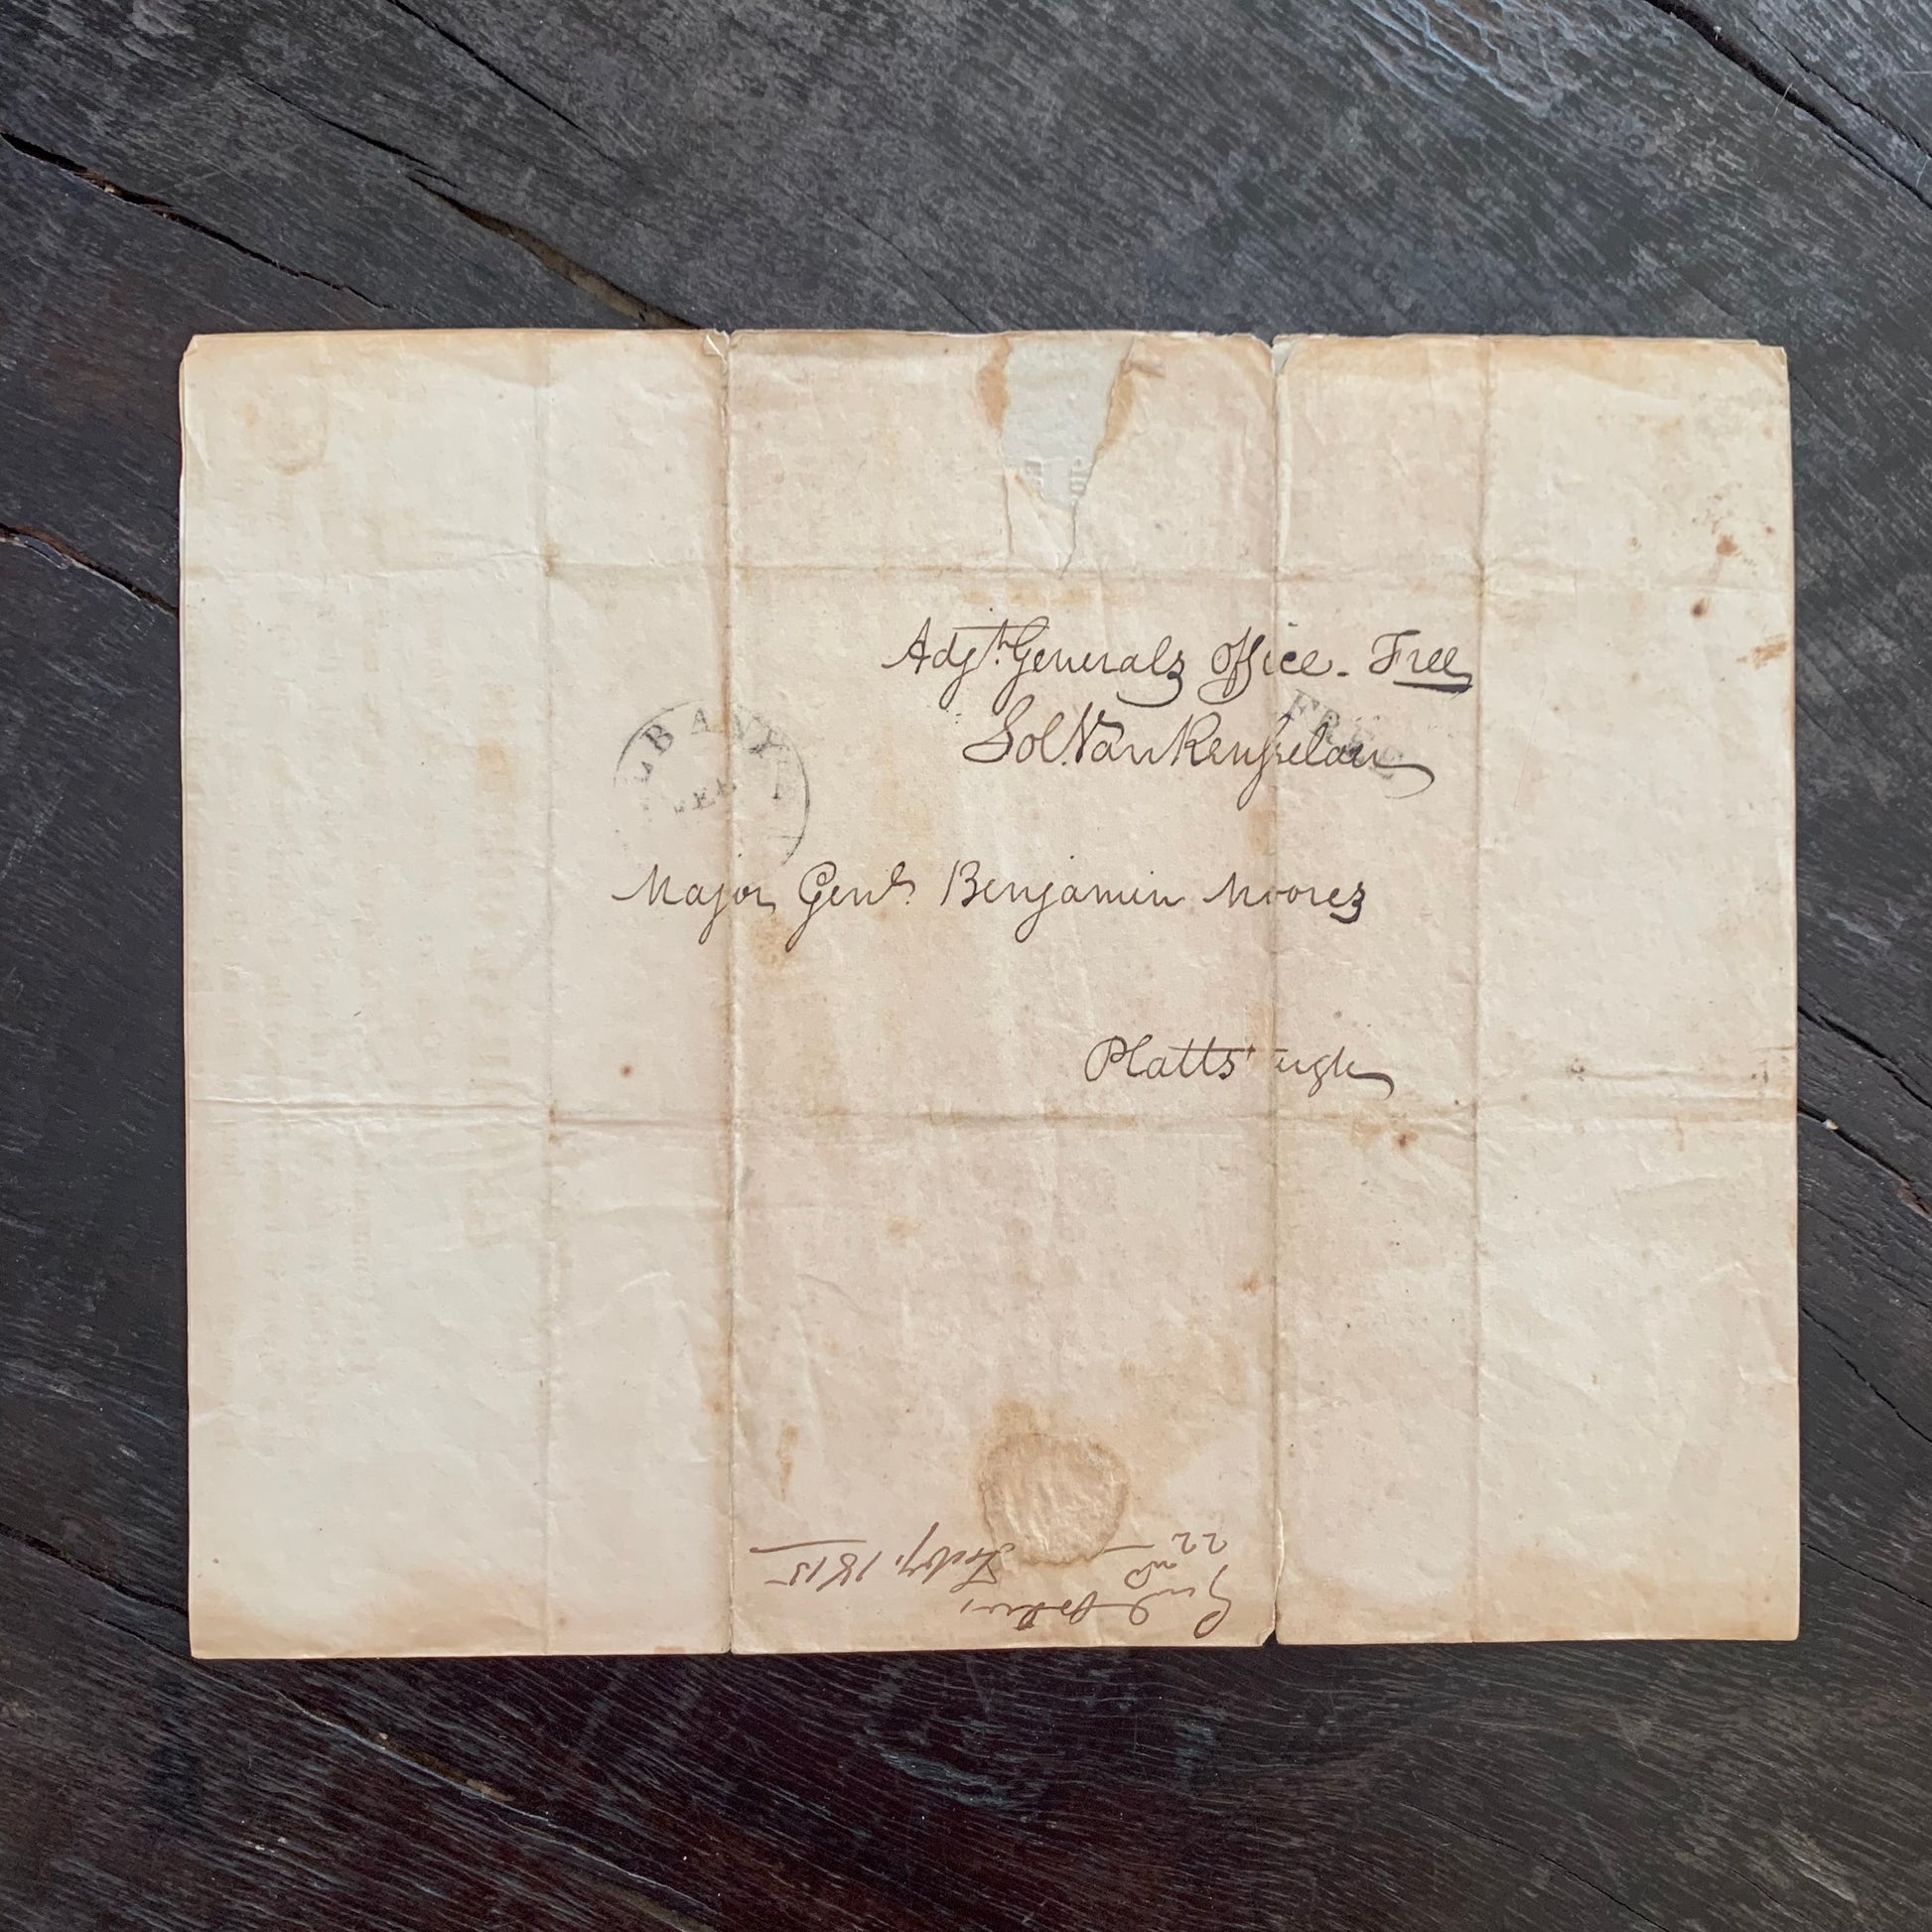 Adjt. Generals Office. Free
FREE
Sol. Van Rensselaer
LBANY
FEB
Major Genl. Benjamin Mooers
Plattsburgh
Genl Orders
22nd Feby. 1815